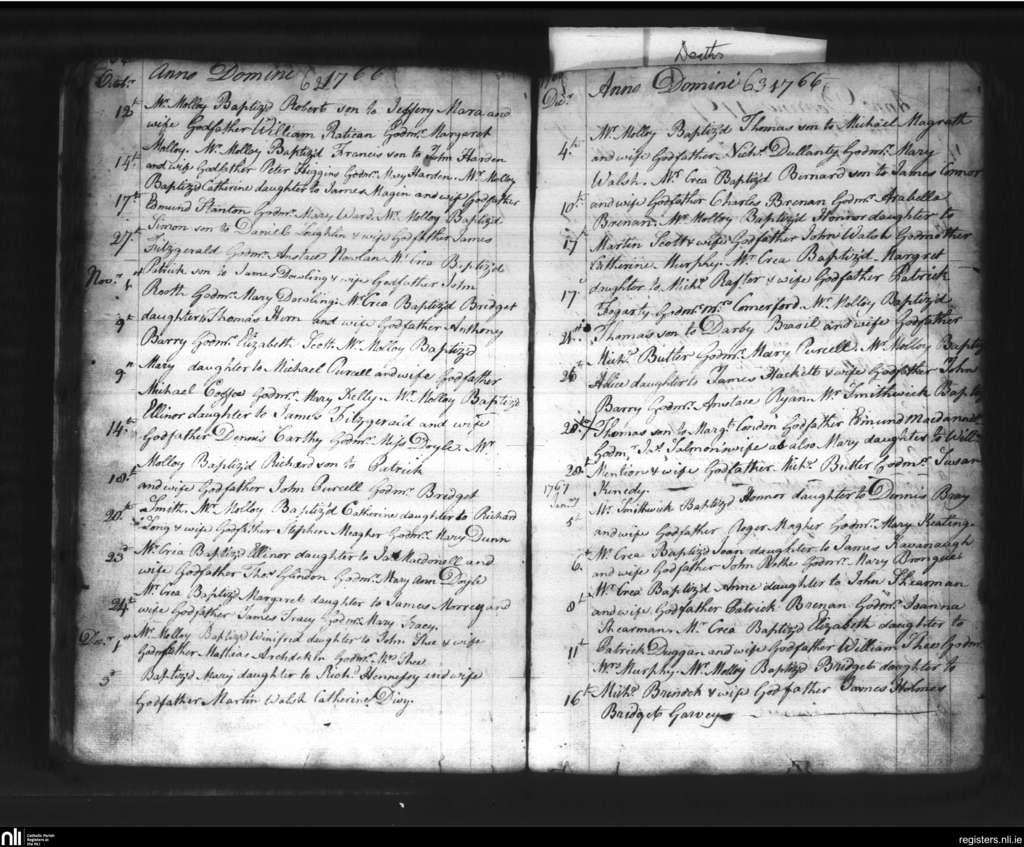 Deaths
Octr. Anno Domini 62 1766
12t Mr. Molloy Baptiz'd Robert son to Jeffery Mara and
wife Godfather William Godmr. Margaret
14t Molloy. Mr. Molloy Baptiz'd Francis son to John Harden
and wife Godfather Peter Higgins Godmr. Mary Harden. Mr. Molloy
Baptiz'd Catherine daughter to James Magin and wife Godfather
17t Edmund Stanton Godmr. Mary Ward. Mr. Molloy Baptiz'd
Simon son to Daniel Loughlin & wife Godfather James
27t Fitzgerald Godmr. Anstace Nowlan Mr. Crea Baptiz'd
Novr. Patrick son to James Dowling & wife Godfather John
1 Rooth Godmr. Mary Dowling. Mr. Crea Baptiz'd Bridget
9th daughter to Thomas and wife Godfather Anthony
Barry Godmr. Elizabeth Scott Mr. Molloy Baptiz'd
9th Mary daughter to Michael Purcell and wife Godfather
Michael Godmr. Mary Kelly. Mr. Molloy Baptiz'd
Ellinor daughter to James Fitzgerald and wife
14th Godfather Dennis Carthy Godmr. Miss Doyle. Mr.
Molloy Baptiz'd Richard son to Patrick
18th and wife Godfather John Purcell Godmr. Bridget
20t Smith. Mr. Molloy Baptiz'd Catherine daughter to Richard
Long & wife Godfather Stephen Meagher Godmr. Mary Dunn
23d Mr. Cria Baptiz'd Ellinor daughter to Jas. Macdonell and
wife Godfather Thos. Godmr. Mary Ann Doyle
Mr. Crea Baptiz'd Margaret daughter to James and
24th wife Godfather James Tracy Godmr. Mary Tracy.
Decr. 1st Mr. Molloy Baptiz'd Winifrid daughter to John Shee & wife
Godfather Mathias Godmr. Mrs. Shee
5t Baptiz'd Mary daughter to Richd. Hennessy and wife
Godfather Martin Walsh Catherine
Decr. Anno Domini 63 1766
Mr. Molloy Baptiz'd Thomas son to Michael Magrath
4th and wife Godfather Nichs. Dullanty Godmr. Mary
Walsh. Mr. Crea Baptiz'd Bernard son to James Connor
10th and wife Godfather Charles Brenan Godmr. Arabella
Brenan. Mr. Molloy Baptiz'd Honnor daughter to
17t Martin Scott & wife Godfather John Walsh Godmother
Catherine Murphy. Mr. Crea Baptiz'd Margret
17 daughter to Michs. Rafter & wife Godfather Patrick
Fogarty Godmr. Mrs. Comerford. Mr. Molloy Baptiz'd
21st Thomas son to Darby Brasil and wife Godfather
Michs. Butler Godmr. Mary Purcell. Mr. Molloy Baptiz'd
26t Alice daughter to James Hackett & wife Godfather John
Barry Godmr. Anstace Ryan. Mr. Smithwick Baptiz'd
28t Thomas son to Margt. London Godfather Edmund Macdonell
Godmr. Jas. Salmon's wife as also Mary daughter to Willm.
28t & wife Godfather Nichs. Butler Godmr. Susan
1767 Kenedy.
Jany. Mr. Smithwick Baptiz'd Honnor daughter to Dennis Bray
5t and wife Godfather Roger Magher Godmr. Mary Keating.
Mr. Crea Baptiz'd Joan daughter to James Kavanaugh
6t and wife Godfather John Rothe Godmr. Mary
Mr. Crea Baptiz'd Anne daughter to John Shearman
8t and wife Godfather Patrick Brenan Godmr. Joanna
Shearman. Mr. Crea Baptiz'd Elizabeth daughter to
11t Patrick Duggan and wife Godfather William Shee Godmr.
Mrs. Murphy. Mr. Molloy Baptiz'd Bridget daughter to
16t Michs. & wife Godfather James Holmes
Bridget Garvey
nli
Catholic Parish
Registers at
the NLI
registers.nli.ie